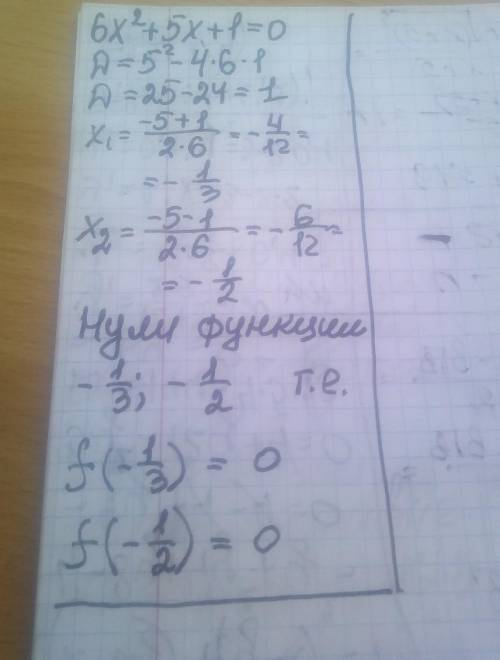 6x²+5x+1=0
D=5²-4·6·1
D=25-24=1
x₁=(-5+1)/(2·6)=-4/12=
=-1/3
x₂=(-5-1)/(2·6)=-6/12=
=-1/2
Нули функции
-1/3; -1/2 т.е.
f(-1/3) = 0
f(-1/2) = 0